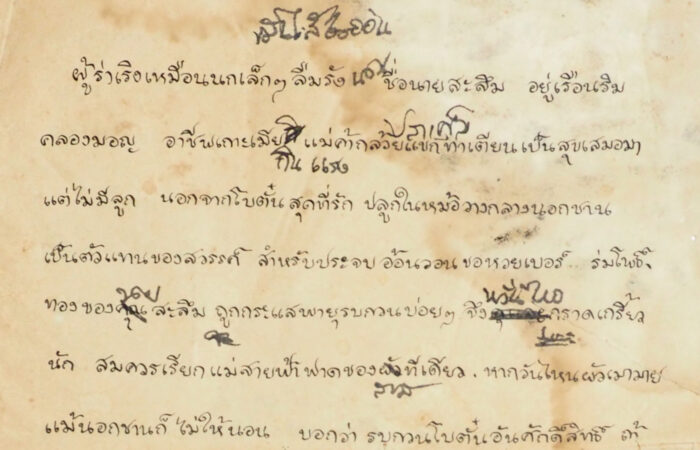 ผู้ร่าเริงเหมือนนกเล็กๆ ลืมรัง ชื่อนายสะลึม อยู่เรือนริม
คลองมอญ อาชีพเกาะเมีย แม่ค้ากล้วยแขกท่าเตียนเป็นสุขเสมอมา
กินแรง
แต่ไม่มีลูก นอกจากโบตั๋นสุดที่รัก ปลูกในหม้อวางกลางนอกชาน
เป็นตัวแทนของสวรรค์ สำหรับประจบ อ้อนวอน ขอหวยเบอร์ ร่มโพธิ์
ทองของ สะลึม ถูกกระแสพายุรบกวนบ่อยๆ จึง กราดเกรี้ยว
นัก สมควรเรียกแม่สายฟ้าฟาดของ ทีเดียว. หากวันไหนผัวเมามาย
แม้นอกชานก็ไม่ให้นอน บอกว่า รบกวนโบตั๋นอันศักดิ์สิทธิ์